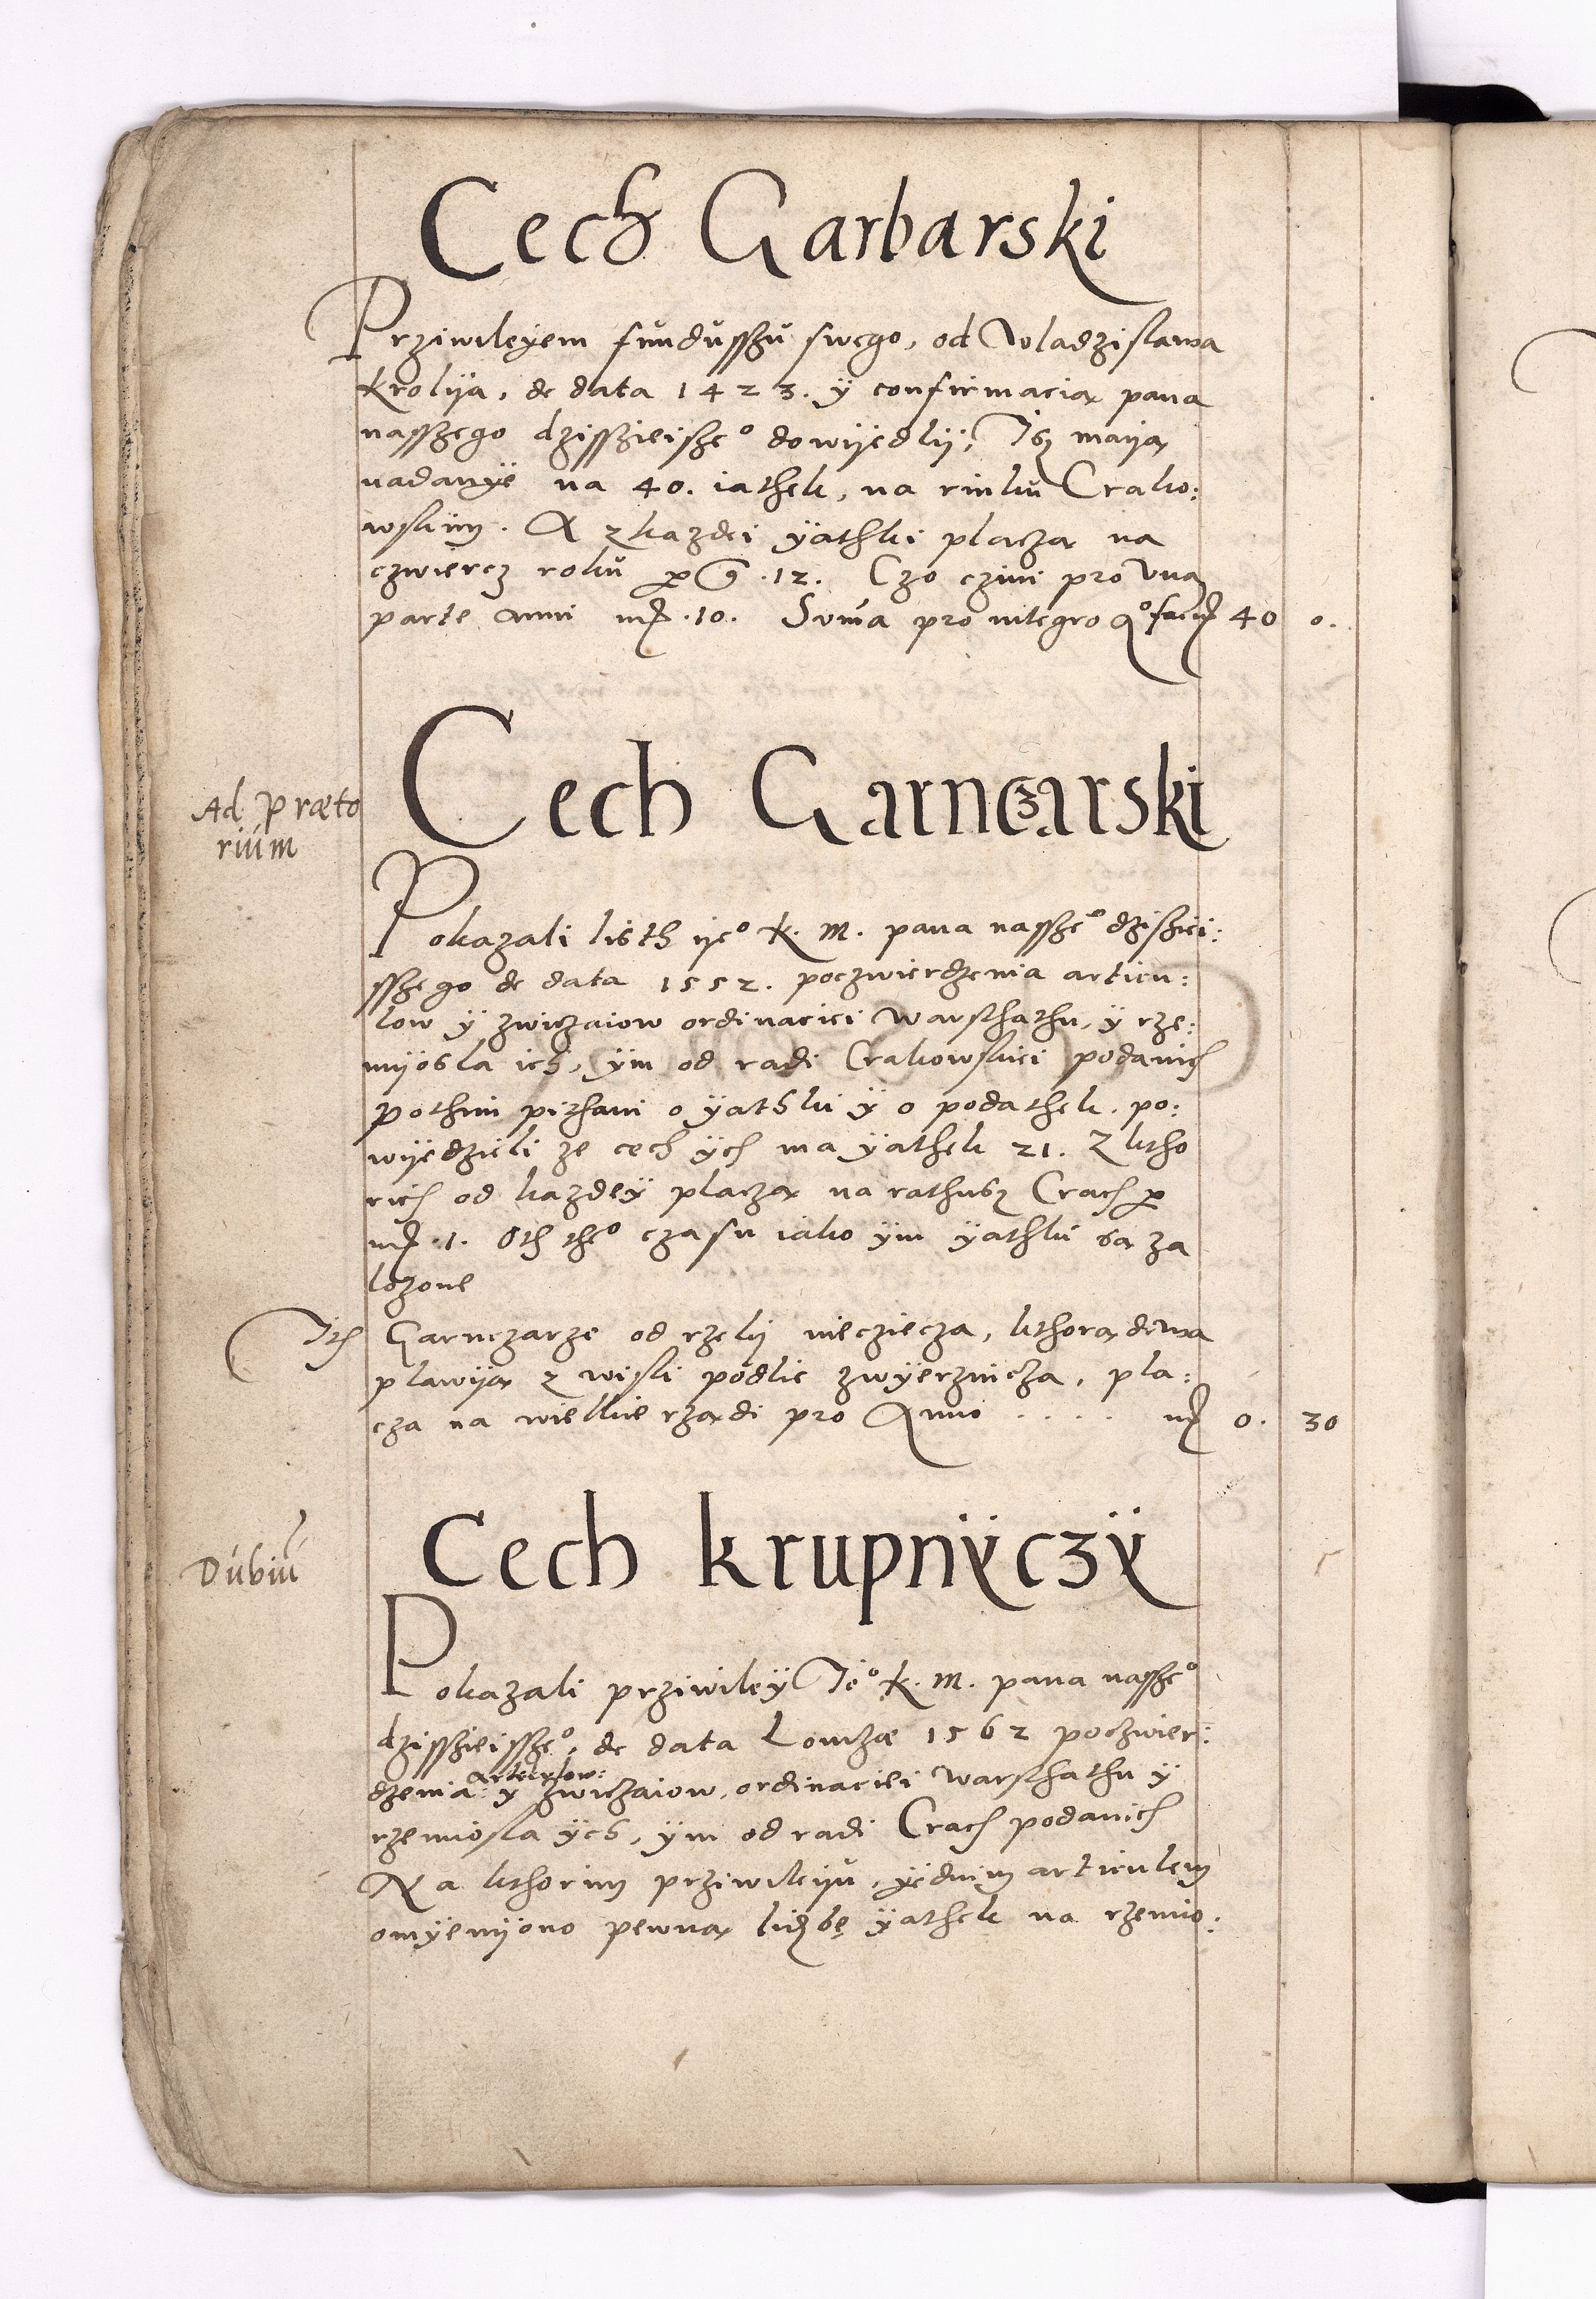 Cech Garbarski
Przivileyem fundusshu swego, od Wladzislawa
krolya, de data 1423. ÿ confirmacia pana
nasshego dzisshieishe° dowijedlij; Isz maija
nadanÿe na 40. iathek, na rinku Crako:
wskim. A z kazdei ÿathki placza na
czwiercz roku per g 12. Czo czini pro vna
parte anni mr 10. Suma pro integro A° facit mr 40 0.
Ad Præto
rium
Cech Garnczarski
Pokazali listh ije° K. M. pana nasshe° dzishiei:
sshego de data 1552. poczwierdzenia articu:
low ÿ zwiczaiow ordinaciei warsthathu, ÿ rze:
mijosla ich, ÿm od radi Crakowskiei podanich
Pothim pithani o ÿathki ÿ o podathek. po:
wijedzieli ze cech ÿch ma ÿathek 21. Z ktho
rich od kazdeÿ placza na rathusz Crach per
mr 1. Oth the° czasu iako ÿm ÿathki sa za
lozone
Ith Garnczarze od rzeki niecziecza, kthora drwa
plawija z wisli podlie zwÿerzincza, pla:
cza na wielkie rzadi pro Anno . . . . mr 0. 30
Dubiu
Cech krupnÿczÿ
Pokazali przivileÿ Je° K. M. pana nasshe°
dzisshieisshe°, de data Lomzæ 1562 poczwier:
articulow:
dzenia ÿ zwiczaiow, ordinaciei warsthathu ÿ
rzemiosla ÿch, ÿm od radi Crach podanich
Na kthorim przivileiju, ÿednim articulem
omÿenÿono pewna liczbę ÿathek na rzemio: